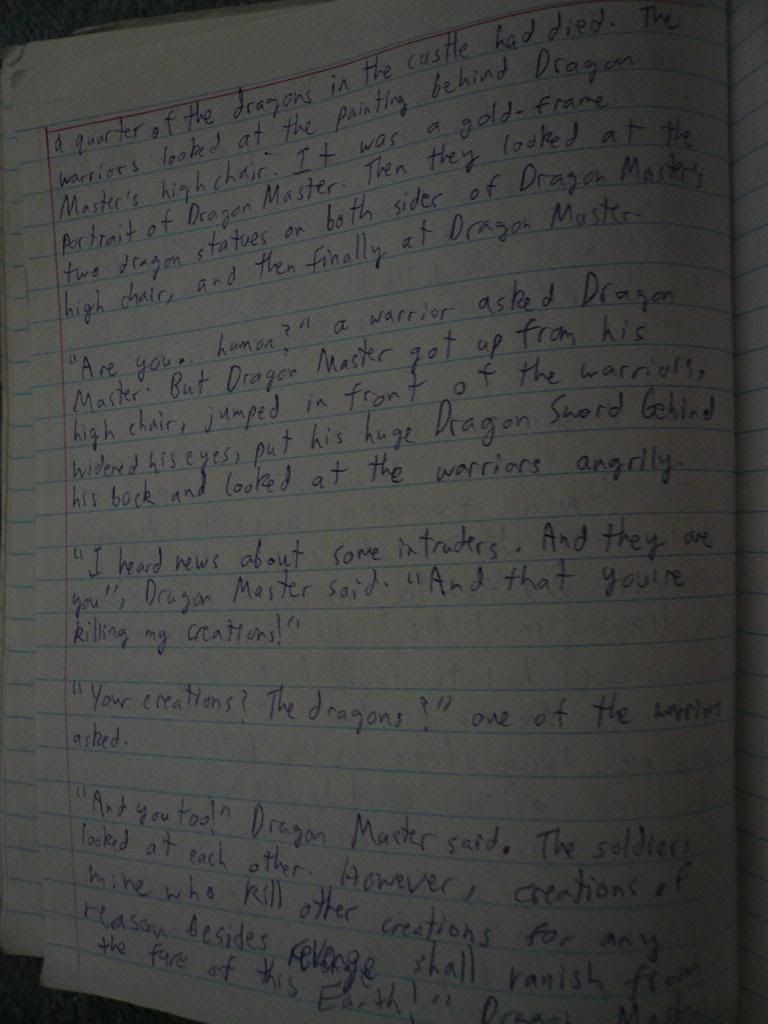 a quarter of the dragons in the castle had died. The
warriors looked at the painting behind Dragon
Master's high chair. It was a gold-frame
portrait of Dragon Master. Then they looked at the
two dragon statues on both sides of Dragon Master's
high chair, and then finally at Dragon Master.
"Are you... human?" a warrior asked Dragon
Master. But Dragon Master got up from his
high chair, jumped in front of the warriors,
widened his eyes, put his huge Dragon Sword behind
his back and looked at the warriors angrily.
"I heard news about some intruders. And they are
you", Dragon Master said. "And that you're
killing my creations!"
"Your creations? The dragons?" one of the warriors
asked.
"And you too!" Dragon Master said. The soldiers
looked at each other. However, creations of
mine who kill other creations for any
reason besides revenge shall vanish from
the face of this Earth!" Dragon Master